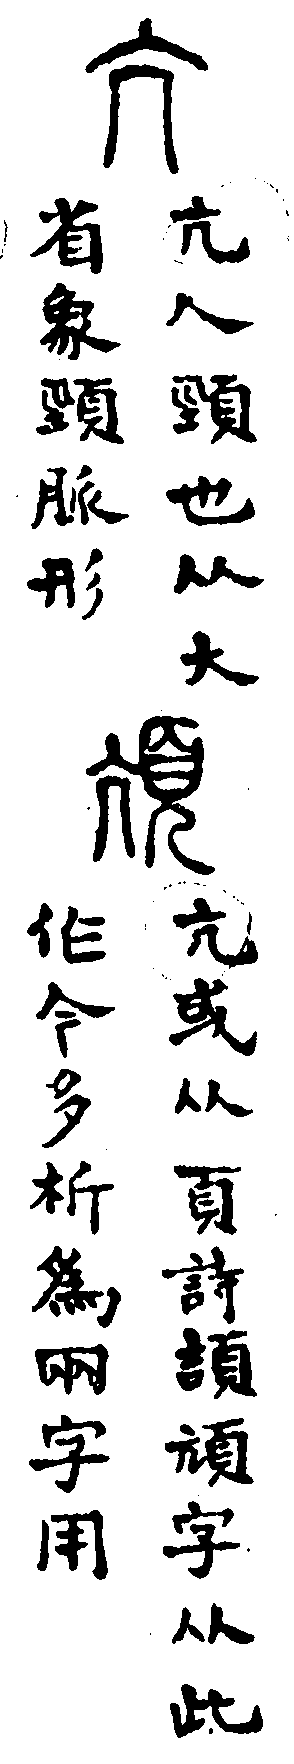 亢
亢人頸也从大
省象頸脈形
頏
亢或从頁詩頡頏字从此
作今多析爲兩字用